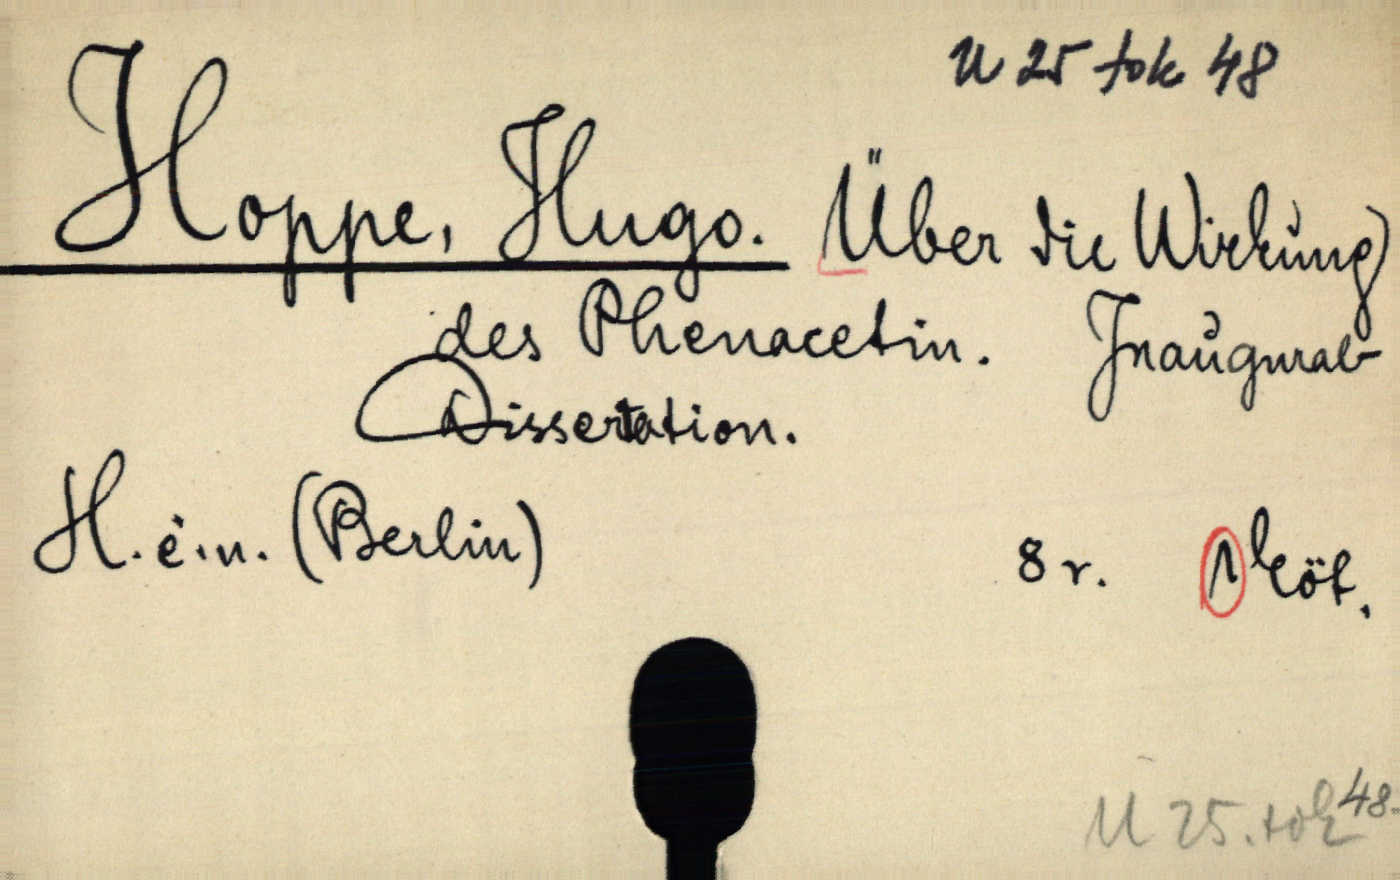 U 25 tok 48
Hoppe, Hugo. Über die Wirkung
des Phenacetin. Inaugural-
Dissertation.
H. é. n. (Berlin)
8 r. 1 köt.
U 25. tok 48.